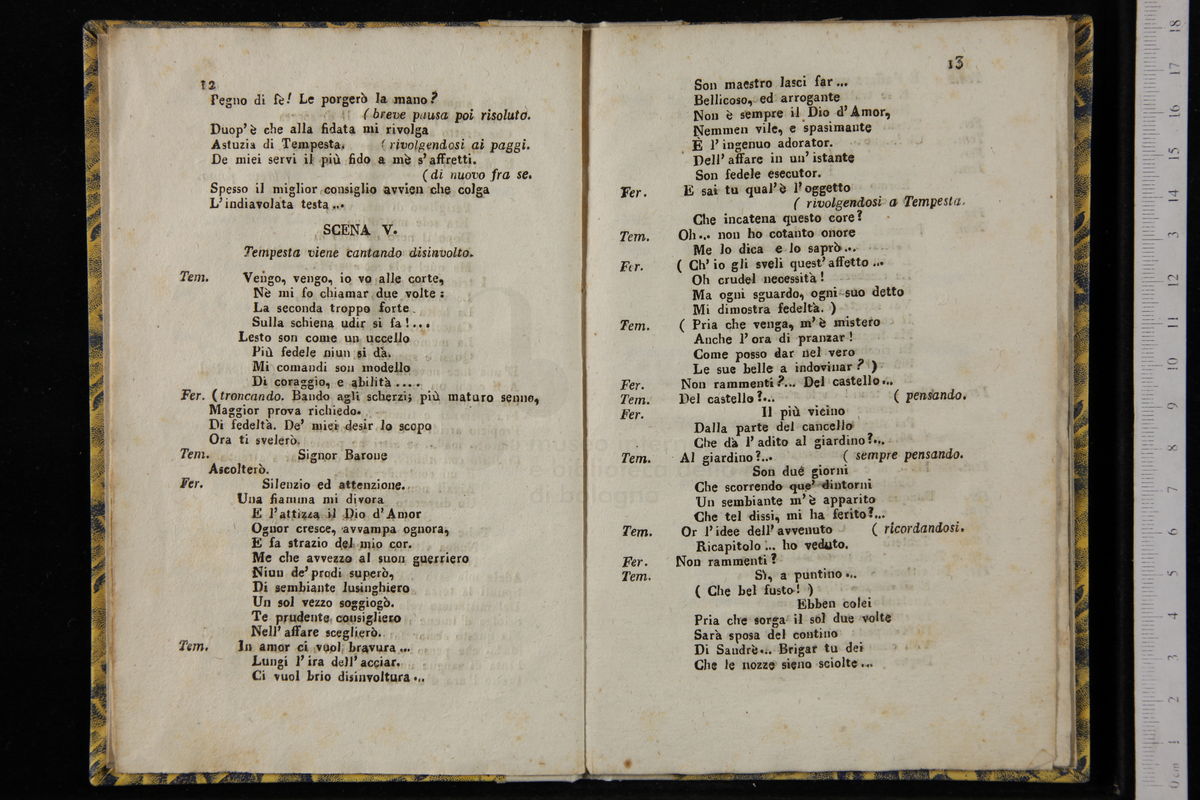 12
Pegno di fè! Le porgerò la mano?
( breve pausa poi risoluto.
Duop'è che alla fidata mi rivolga
Astuzia di Tempesta. ( rivolgendosi ai paggi.
De miei servi il più fido a mè s'affretti.
( di nuovo fra se.
Spesso il miglior consiglio avvien che colga
L'indiavolata testa ...
SCENA V.
Tempesta viene cantando disinvolto.
Tem. Vengo, vengo, io vo alle corte,
Nè mi fo chiamar due volte :
La seconda troppo forte
Sulla schiena udir si fa!...
Lesto son come un uccello
Più fedele niun si dà.
Mi comandi son modello
Di coraggio, e abilità ....
Fer. ( troncando. Bando agli scherzi; più maturo senno,
Maggior prova richiedo.
Di fedeltà. De' miei desir lo scopo
Ora ti svelerò.
Tem. Signor Barone
Ascolterò.
Fer. Silenzio ed attenzione.
Una fiamma mi divora
E l'attizza il Dio d'Amor
Ognor cresce, avvampa ognora,
E fa strazio del mio cor.
Me che avvezzo al suon guerriero
Niun de' prodi superò,
Di sembiante lusinghiero
Un sol vezzo soggiogò.
Te prudente consigliero
Nell' affare sceglierò.
Tem. In amor ci vuol bravura ...
Lungi l'ira dell' acciar.
Ci vuol brio disinvoltura ...
13
Son maestro lasci far ...
Bellicoso, ed arrogante
Non è sempre il Dio d'Amor,
Nemmen vile, e spasimante
È l'ingenuo adorator.
Dell' affare in un' istante
Son fedele esecutor.
Fer. E sai tu qual'è l'oggetto
( rivolgendosi a Tempesta.
Che incatena questo core?
Tem. Oh... non ho cotanto onore
Me lo dica e lo saprò...
Fer. ( Ch' io gli sveli quest' affetto ...
Oh crudel necessità !
Ma ogni sguardo, ogni suo detto
Mi dimostra fedeltà. )
Tem. ( Pria che venga, m' è mistero
Anche l' ora di pranzar !
Come posso dar nel vero
Le sue belle a indovinar ? )
Fer. Non rammenti?... Del castello...
Tem. Del castello?... ( pensando.
Fer. Il più vicino
Dalla parte del cancello
Che dà l' adito al giardino?...
Tem. Al giardino?... ( sempre pensando.
Son due giorni
Che scorrendo que' dintorni
Un sembiante m' è apparito
Che tel dissi, mi ha ferito?...
Tem. Or l' idee dell' avvenuto ( ricordandosi.
Ricapitolo ... ho veduto.
Fer. Non rammenti ?
Tem. Sì, a puntino ...
( Che bel fusto ! )
Ebben colei
Pria che sorga il sol due volte
Sarà sposa del contino
Di Sandrè... Brigar tu dei
Che le nozze sieno sciolte ...
museo
di bologna